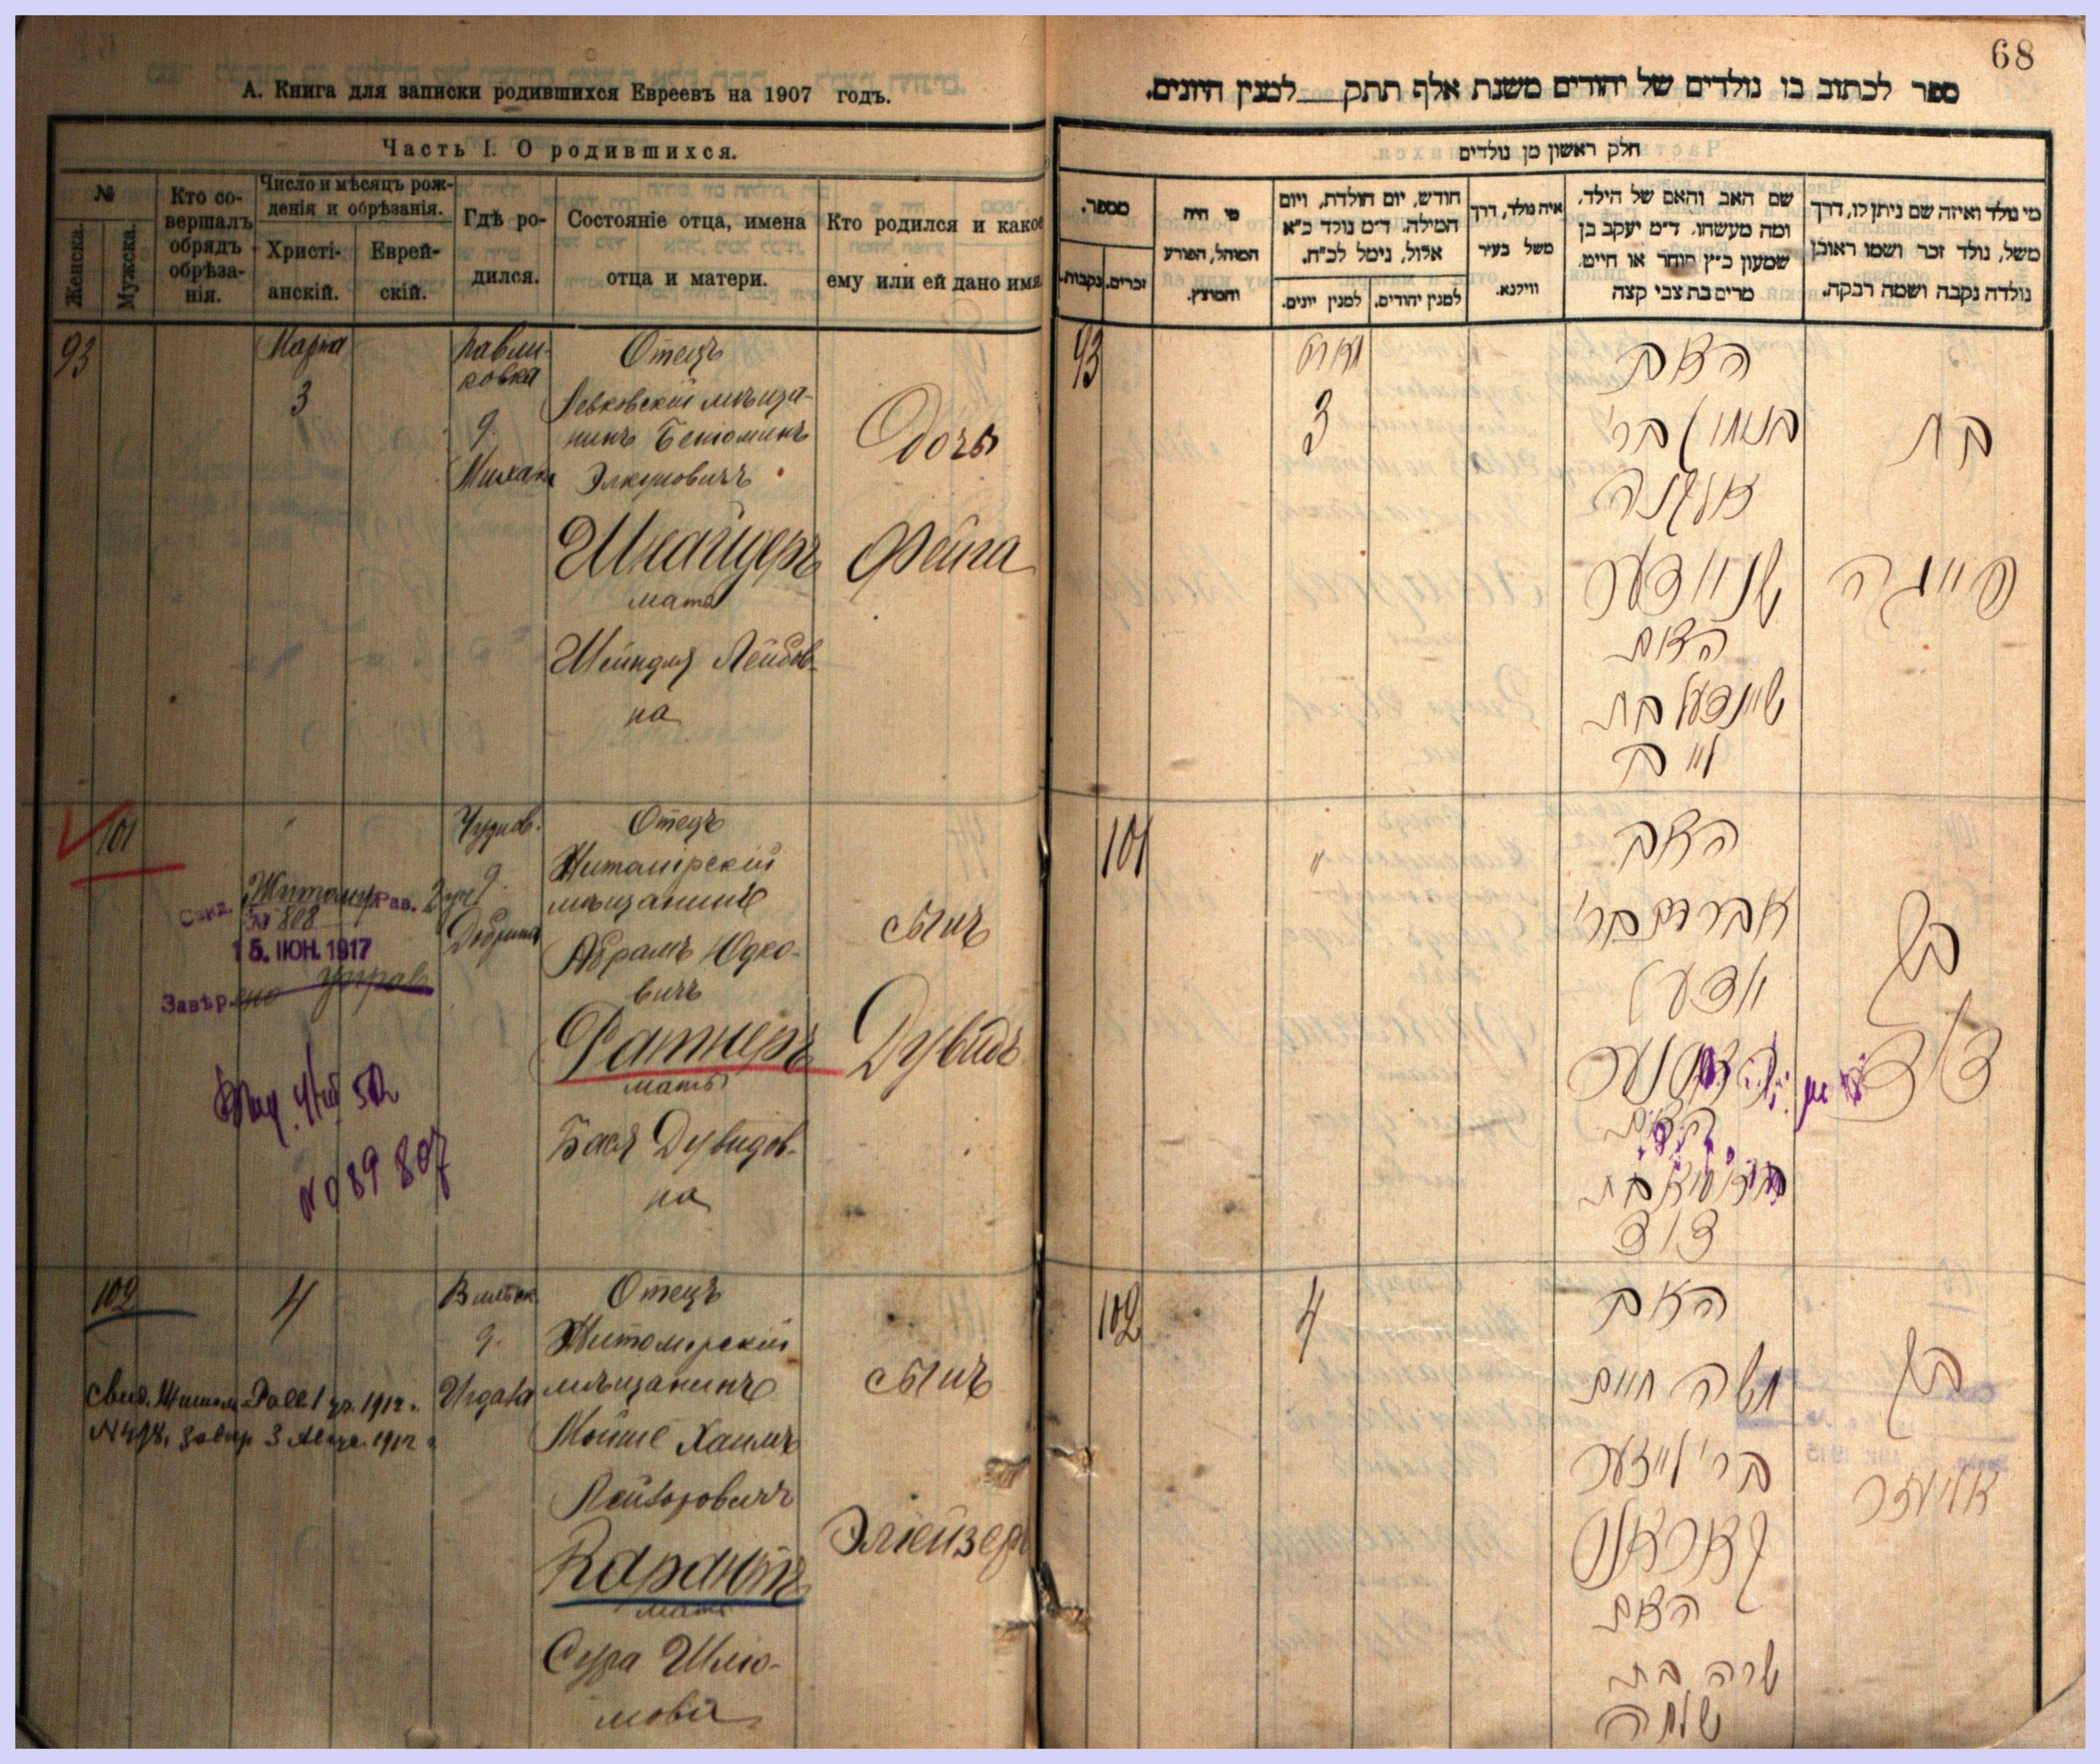 68
А. Книга для записки родившихся Евреевъ на 1907 годъ.
Часть I. О родившихся.
№
Женска.
Мужска.
Кто со-
вершалъ
обрядъ
обрѣза-
нія.
Число и мѣсяцъ рож-
денія и обрѣзанія.
Христі-
анскій.
Еврей-
скій.
Гдѣ ро-
дился.
Состояніе отца, имена
отца и матери.
Кто родился и какое
ему или ей дано имя
93
Марта
3
Павли-
ковка
д.
Отецъ
мѣща-
нинъ Беніоминъ
Элкуновичъ
Шнайдеръ
мать
Шейндля Лейбов-
на
Дочь
Фейга
101
Чуднов.
2 уч
д.
Отецъ
Житомірскій
мѣщанинъ
Абрамъ Юдко-
вичъ
Ратнеръ
мать
Бася Дувидов-
на
Сынъ
Дувидъ
Житомир Рав.
№ 808
15. ІЮН. 1917
Завѣр
№ 089 807
102
4
Витебск.
д.
Отецъ
Житомирскій
мѣщанинъ
Мойше Хаимъ
Лейзоровичъ
Карантъ
мать
Сура Шлио-
мовна
Сынъ
Элиейзеръ
1912 г.
3 1912 г
ספר לכתוב בו נולדים של יהודים משנת אלף תתק__למנין היונים.
חלק ראשון מן נולדים
מספר.
זכרים.
נקבות.
מי היה
המוהל, הפורע
והמוצץ.
חודש, יום הולדת, ויום
המילה. ד״מ נולד כ״א
אלול, נימל לכ״ח.
למנין יונים.
למנין יהודים.
איה נולד, דרך
משל בעיר
ווילנא.
שם האב והאם של הילד,
ומה מעשהו. ד״מ יעקב בן
שמעון כ״ץ סוחר או חייט.
מרים בת צבי קצה
מי נולד ואיזה שם ניתן לו, דרך
משל, נולד זכר ושמו ראובן
נולדה נקבה ושמה רבקה.
93
מארט
3
האב
בנימין בר׳
אלקנה
שניידער
האם
שיינדעל בת
לייב
בת
פייגה
101
״
האב
אברהם בר׳
יודעל
ראטנער
האם
באסיא בת
דוד
בן
דוד
102
4
האב
משה חיים
בר׳ לייזער
קאראנט
האם
שרה בת
שלמה
בן
אליעזר